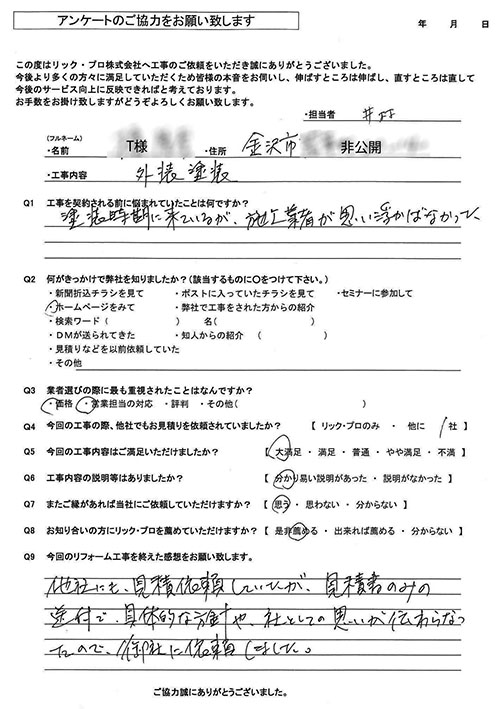 アンケートのご協力をお願い致します
年 月 日
この度はリック・プロ株式会社へ工事のご依頼をいただき誠にありがとうございました。
今後より多くの方々に満足していただくため皆様の本音をお伺いし、伸ばすところは伸ばし、直すところは直して
今後のサービス向上に反映できればと考えております。
お手数をお掛け致しますがどうぞよろしくお願い致します。
・担当者 井
(フルネーム)
・名前 T様 ・住所 金沢市 非公開
・工事内容 外装塗装
Q1 工事を契約される前に悩まれていたことは何ですか?
塗装時期に来ているが、施工業者が思い浮かばなかった
Q2 何がきっかけで弊社を知りましたか?(該当するものに〇をつけて下さい。)
・新聞折込チラシを見て ・ポストに入っていたチラシを見て ・セミナーに参加して
・ホームページをみて ・弊社で工事をされた方からの紹介
・検索ワード ( ) 名( )
・DMが送られてきた ・知人からの紹介 ( )
・見積りなどを以前依頼していた
・その他
Q3 業者選びの際に最も重視されたことはなんですか?
・価格 ・営業担当の対応 ・評判 ・その他( )
Q4 今回の工事の際、他社でもお見積りを依頼されていましたか? 【 リック・プロのみ ・ 他に 1社 】
Q5 今回の工事内容はご満足いただけましたか? 【 大満足 ・ 満足 ・ 普通 ・ やや満足 ・ 不満 】
Q6 工事内容の説明等はありましたか? 【 分かり易い説明があった ・ 説明がなかった 】
Q7 またご縁があれば当社にご依頼していただけますか? 【 思う ・ 思わない ・ 分からない 】
Q8 お知り合いの方にリック・プロを薦めていただけますか? 【 是非薦める ・ 出来れば薦める ・ 分からない 】
Q9 今回のリフォーム工事を終えた感想をお願い致します。
他社にも、見積依頼していたが、見積書のみの
送付で、具体的な方針や、社としての思いが伝わらなっ
たので、御社に依頼しました。
ご協力誠にありがとうございました。